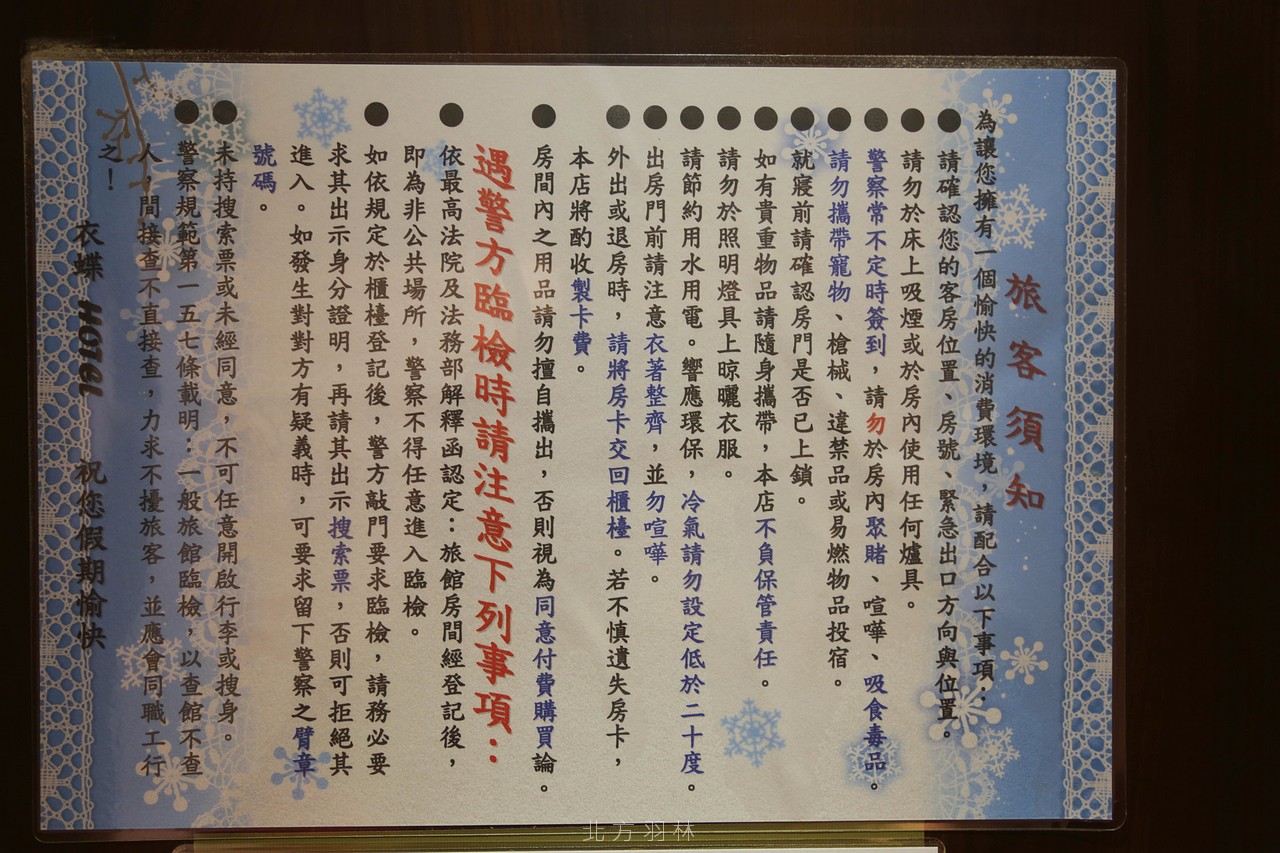 旅客須知
為讓您擁有一個愉快的消費環境，請配合以下事項：
●請確認您的客房位置、房號、緊急出口方向與位置。
●請勿於床上吸煙或於房內使用任何爐具。
●警察常不定時簽到，請勿於房內聚賭、喧嘩、吸食毒品。
●請勿攜帶寵物、槍械、違禁品或易燃物品投宿。
●就寢前請確認房門是否已上鎖。
●如有貴重物品請隨身攜帶，本店不負保管責任。
●請勿於照明燈具上晾曬衣服。
●請節約用水用電。響應環保，冷氣請勿設定低於二十度。
●出房門前請注意衣著整齊，並勿喧嘩。
●外出或退房時，請將房卡交回櫃檯。若不慎遺失房卡，
本店將酌收製卡費。
●房間內之用品請勿擅自攜出，否則視為同意付費購買論。
遇警方臨檢時請注意下列事項：
●依最高法院及法務部解釋函認定：旅館房間經登記後，
即為非公共場所，警察不得任意進入臨檢。
●如依規定於櫃檯登記後，警方敲門要求臨檢，請務必要
求其出示身分證明，再請其出示搜索票，否則可拒絕其
進入。如發生對對方有疑義時，可要求留下警察之臂章
號碼。
●未持搜索票或未經同意，不可任意開啟行李或搜身。
●警察規範第一五七條載明：一般旅館臨檢，以查館不查
人，間接查不直接查，力求不擾旅客，並應會同職工行
之！
衣蝶 HOTEL 祝您假期愉快
北方羽林